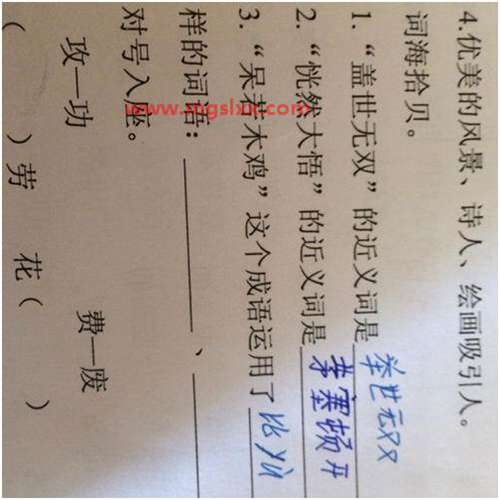 4.优美的风景、诗人、绘画吸引人。
词海拾贝。
1.“盖世无双”的近义词是举世无双
2.“恍然大悟”的近义词是茅塞顿开
3.“呆若木鸡”这个成语运用了比yù
样的词语：________、________
对号入座。
攻—功 费—废
( )劳 花( )